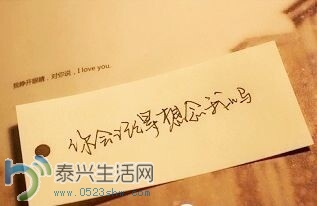 我睁开眼睛，对你说，I love you.
你会不会想念我吗
泰兴生活网
www.0523shw.com